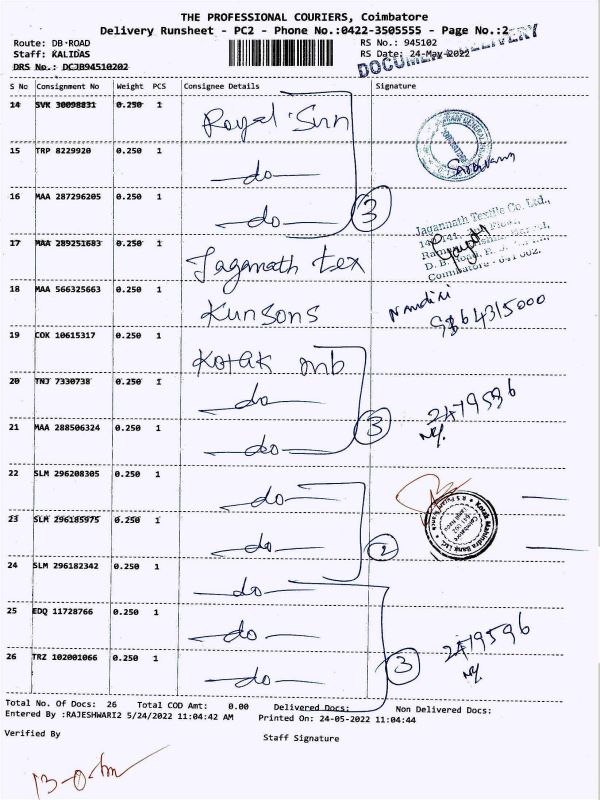 THE PROFESSIONAL COURIERS, Coimbatore
Delivery Runsheet - PC2 - Phone No.:0422-3505555 - Page No.:2
Route: DB-ROAD RS No.: 945102
Staff: KALIDAS RS Date: 24-May-2022
DRS No.: DCJB94510202
DOCUMENT DELIVERY
S No Consignment No Weight PCS Consignee Details Signature
14 SVK 30098831 0.250 1 Royal Sun
15 TRP 8229920 0.250 1 do
16 MAA 287296205 0.250 1 do 3
Jagannath Textile Co. Ltd.,
17 MAA 289251683 0.250 1 Jaganath tex
Coimbatore
18 MAA 566325663 0.250 1 Kunsons
19 COK 10615317 0.250 1 Kotak mb
20 TNJ 7330738 0.250 1 do
21 MAA 288506324 0.250 1 do 3
22 SLM 296208305 0.250 1 do
Kotak Mahindra Bank Ltd.
23 SLM 296185975 0.250 1 do 2
24 SLM 296182342 0.250 1 do
25 EDQ 11728766 0.250 1 do
26 TRZ 102001066 0.250 1 do 3
Total No. Of Docs: 26 Total COD Amt: 0.00 Delivered Docs: Non Delivered Docs:
Entered By :RAJESHWARI2 5/24/2022 11:04:42 AM Printed On: 24-05-2022 11:04:44
Verified By Staff Signature